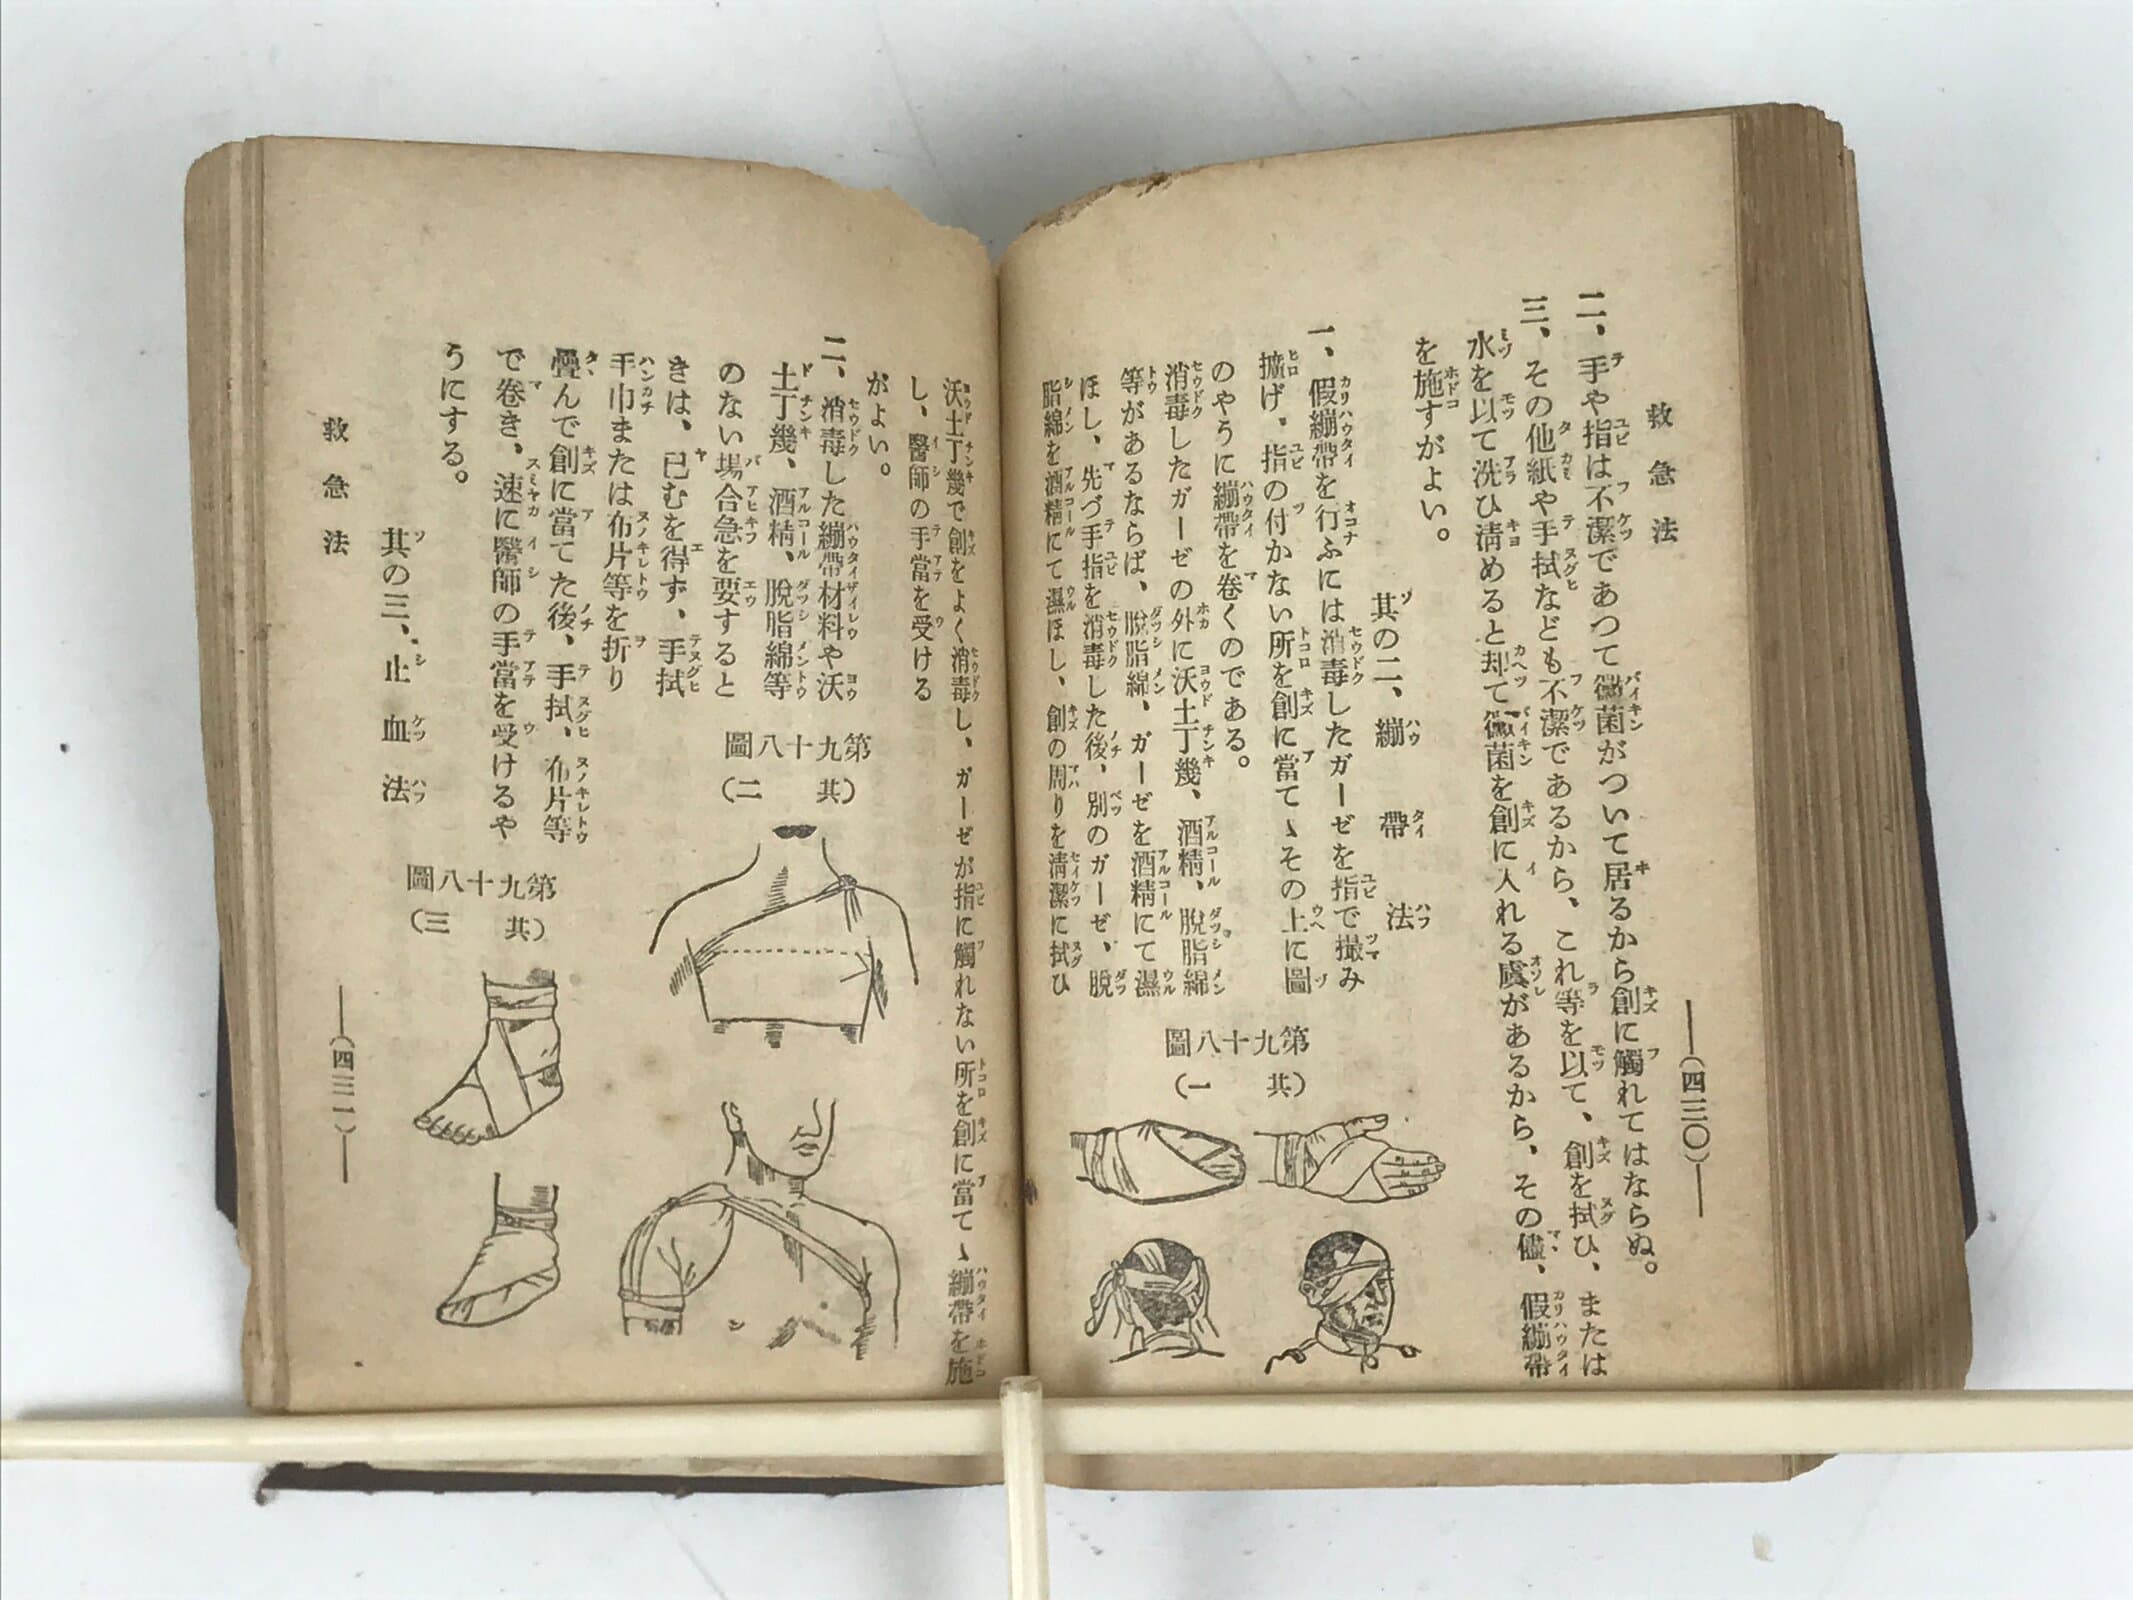 救急法
―(四三〇)―
二、手や指は不潔であつて黴菌がついて居るから創に觸れてはならぬ。
三、その他紙や手拭なども不潔であるから、これ等を以て、創を拭ひ、または
水を以て洗ひ淸めると却て黴菌を創に入れる虞があるから、その儘、假繃帶
を施すがよい。
其の二、繃帶法
一、假繃帶を行ふには消毒したガーゼを指で撮み
擴げ、指の付かない所を創に當てゝその上に圖
のやうに繃帶を卷くのである。
消毒したガーゼの外に沃土丁幾、酒精、脫脂綿
等があるならば、脫脂綿、ガーゼを酒精にて濕
ほし、先づ手指を消毒した後、別のガーゼ、脫
脂綿を酒精にて濕ほし、創の周りを淸潔に拭ひ
第九十八圖
(其一)
沃土丁幾で創をよく消毒し、ガーゼが指に觸れない所を創に當てゝ繃帶を施
し、醫師の手當を受ける
がよい。
二、消毒した繃帶材料や沃
土丁幾、酒精、脫脂綿等
のない場合急を要すると
きは、已むを得ず、手拭
手巾または布片等を折り
疊んで創に當てた後、手拭、布片等
で卷き、速に醫師の手當を受けるや
うにする。
第九十八圖
(其二)
第九十八圖
(其三)
其の三、止血法
救急法
―(四三一)―